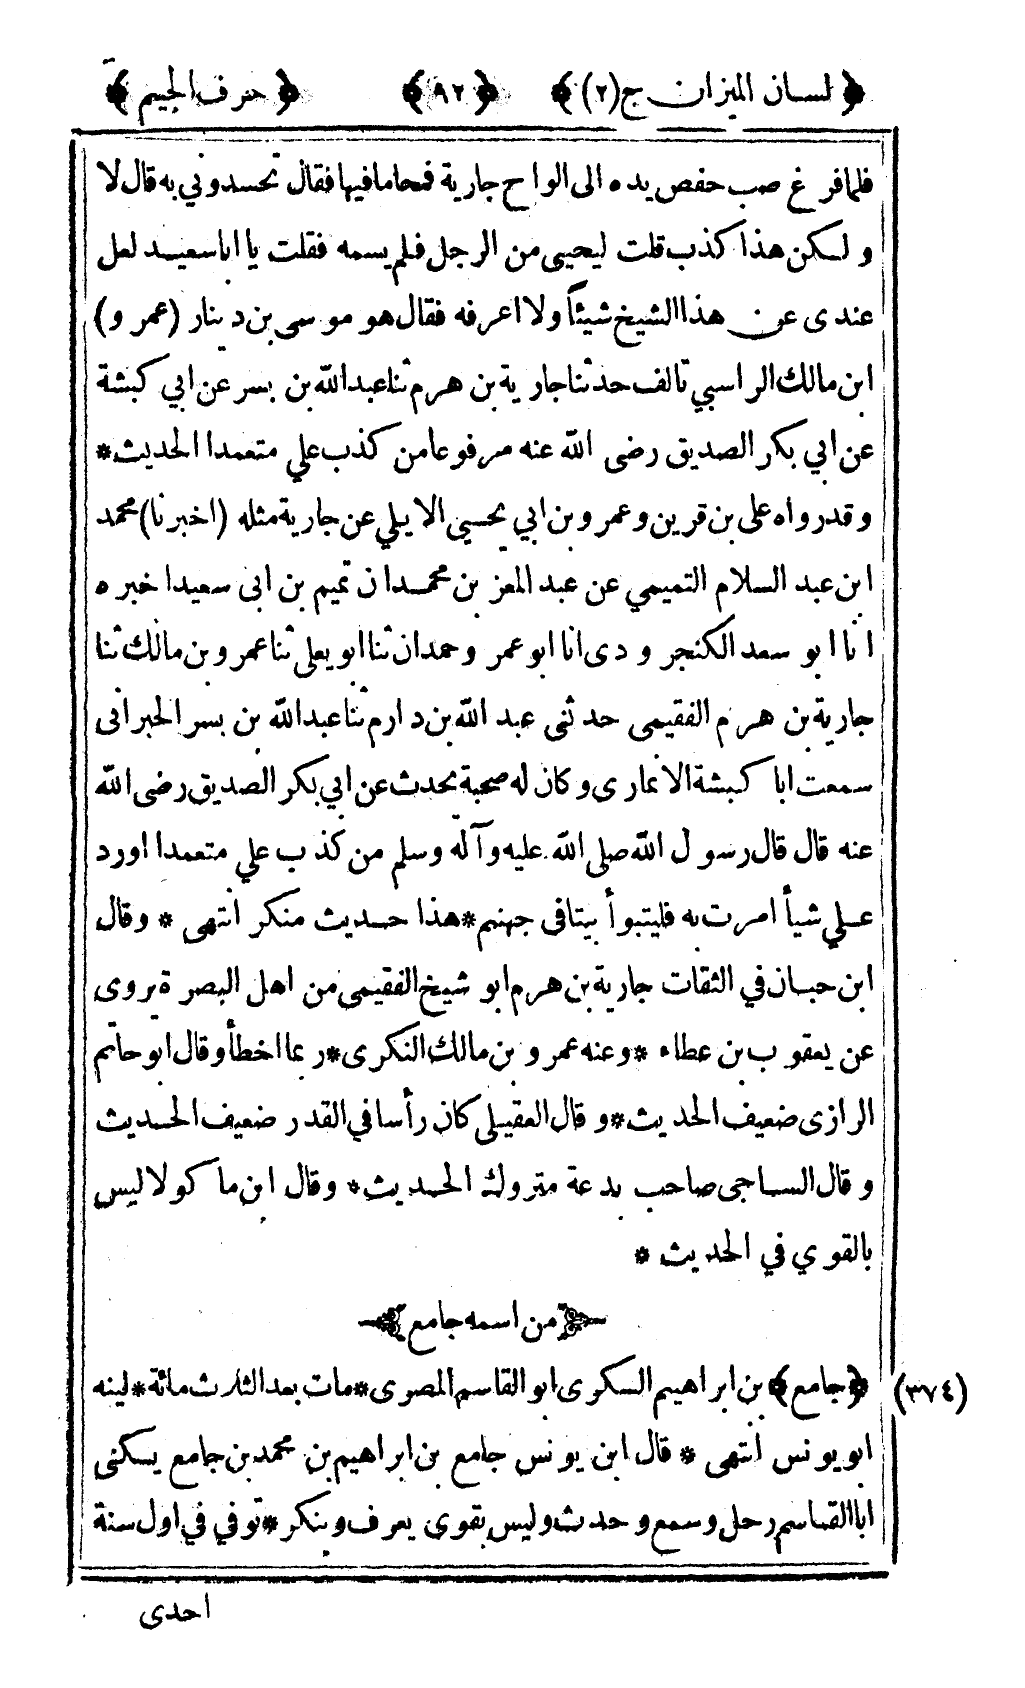 ﴿ لسان الميزان ج (٢) ﴾ ﴿ ٩٢ ﴾ ﴿ حرف الجيم ﴾
فلما فرغ صب حفص يده الى الواح جارية فمحا ما فيها فقال تحسدوني به قال لا
ولكن هذا كذب قلت ليحيى من الرجل فلم يسمه فقلت يا ابا سعيد لعل
عندى عن هذا الشيخ شيئاً ولا اعرفه فقال هو موسى بن دينار (عمرو)
ابن مالك الراسبي تالف حدثنا جارية بن هرم ثنا عبد الله بن بسر عن ابي كبشة
عن ابي بكر الصديق رضى الله عنه مرفوعا من كذب علي متعمدا الحديث*
وقد رواه على بن قرين وعمرو بن ابي يحيى الايلي عن جارية مثله (اخبرنا) محمد
ابن عبد السلام التميمي عن عبد المعز بن محمد ان تميم بن ابى سعيد اخبره
انا ابو سعد الكنجرودى انا ابو عمرو حمدان ثنا ابو يعلى ثنا عمرو بن مالك ثنا
جارية بن هرم الفقيمى حدثنى عبد الله بن دارم ثنا عبد الله بن بسر الحبرانى
سمعت ابا كبشة الانمارى وكان له صحبة يحدث عن ابي بكر الصديق رضى الله
عنه قال قال رسول الله صلى الله عليه وآله وسلم من كذب علي متعمدا اورد
علي شيأ امرت به فليتبوأ بيتا فى جهنم*هذا حديث منكر انتهى * وقال
ابن حبان في الثقات جارية بن هرم ابو شيخ الفقيمى من اهل البصرة يروى
عن يعقوب بن عطاء *وعنه عمرو بن مالك النكرى*ربما اخطأ وقال ابو حاتم
الرازى ضعيف الحديث*وقال العقيلى كان رأسا في القدر ضعيف الحديث
وقال الساجى صاحب بدعة متروك الحديث* وقال ابن ماكولا ليس
بالقوي في الحديث *
﴿من اسمه جامع﴾
(٣٧٤) ﴿جامع﴾ بن ابراهيم السكرى ابو القاسم المصرى*مات بعد الثلاث مائة*لينه
ابو يونس انتهى * قال ابن يونس جامع بن ابراهيم بن محمد بن جامع يسكنى
ابا القاسم رحل وسمع وحدث وليس بقوى يعرف وينكر*توفي في اول سنة
احدى